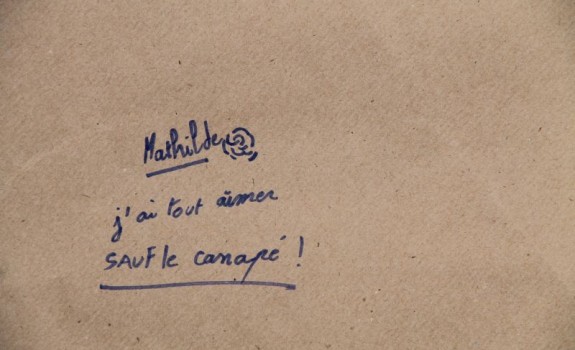 Mathilde
j'ai tout aimer
SAUF le canapé !